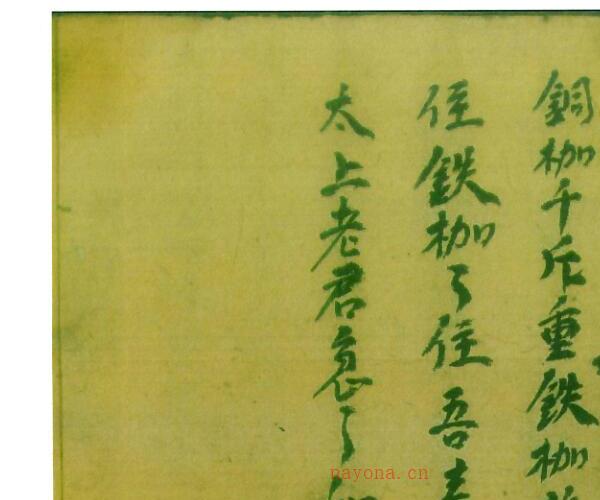 銅枷千斤重鉄枷
住鉄枷了住吾
太上老君急了
nayona.cn